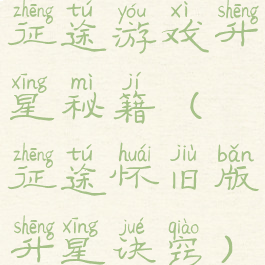 zhēng tú yóu xì shēng
征途游戏升
xīng mì jí
星秘籍(
zhēng tú huái jiù bǎn
征途怀旧版
shēng xīng jué qiào
升星诀窍)